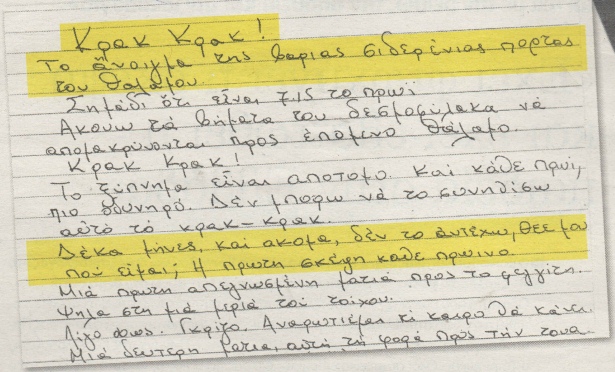 Κρακ Κρακ!
Το ἄνοιγμα της βαριας σιδερένιας πορτας
του θαλαμου.
Σημάδι ὅτι εἶναι 7,15 το πρωϊ
Ακουω τά βήματα του δεσμοφύλακα νά
απομακρύνονται προς ἑπομενο θάλαμο.
Κρακ Κρακ!
Το ξύπνημα εἶναι αποτομο. Και κάθε πρωί,
πιο οδυνηρό. Δέν μπορω νά το συνηθίσω
αὐτό τό κρακ-κρακ.
Δέκα μῆνες, και ακομα, δέν το ἀντέχω, Θεε μου
πού εἶμαι; Η πρωτη σκέψη κάθε πρωινο.
Μιά πρωτη απεγνωσμένη ματιά προς το φεγγίτη.
Ψηλα στη μιά μεριά τοῦ τοίχου.
Λίγο φως. Γκρίζο. Αναρωτιέμαι τι καιρο θά κάνει.
Μιά δευτερη ματια, αὐτή τη φορά προς τήν